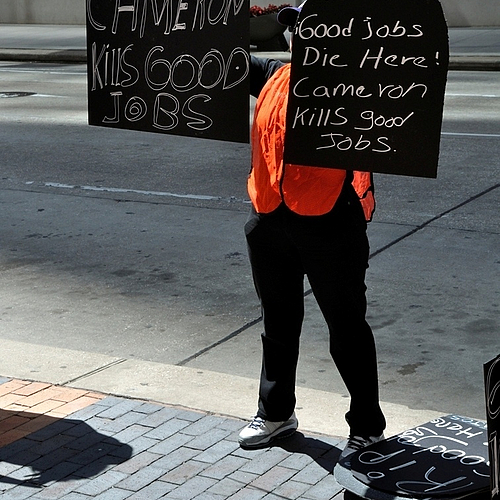 CAMERON
KillS GOOD
JOBS
Good jobs
Die Here!
Cameron
KillS good
Jobs.
RIP
Good jobs
Here